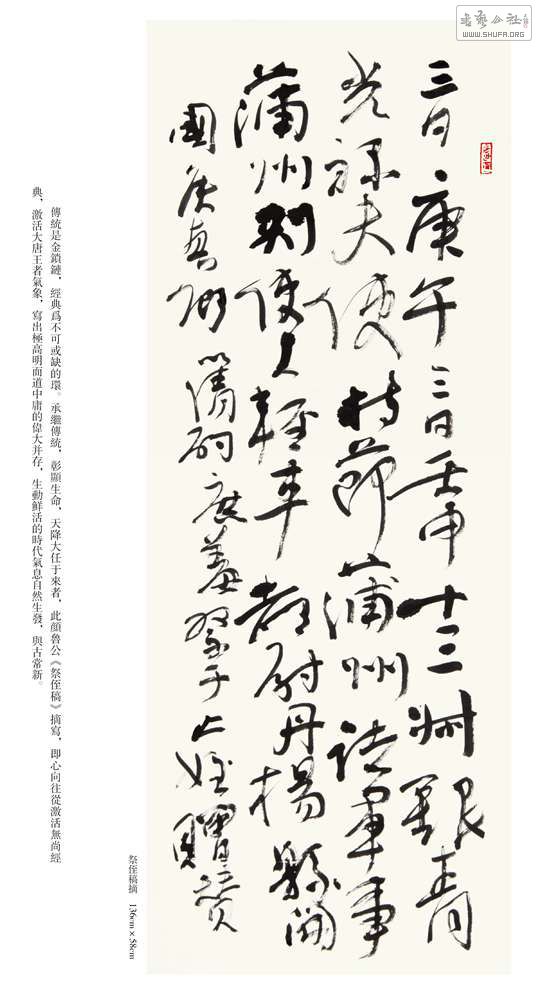 書藝公社
WWW.SHUFA.ORG
三日庚午三日壬申十三州銀青
光祿夫使持節蒲州諸軍事
蒲州刺使上輕車都尉丹楊縣開
國侯真卿以清酌庶羞祭于亡姪贈贊
祭侄稿摘 136cm×58cm
傳統是金鎖鏈，經典爲不可或缺的環。承繼傳統，彰顯生命，天降大任于來者，此顏魯公《祭侄稿》摘寫，即心向往從激活無尚經
典，激活大唐王者氣象，寫出極高明而道中庸的偉大并存，生動鮮活的時代氣息自然生發，與古常新。